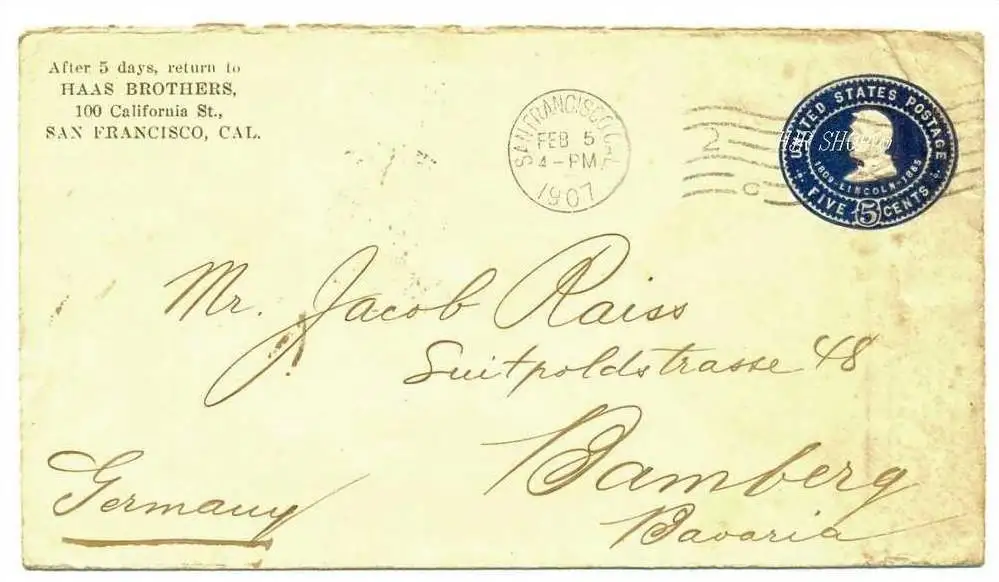 After 5 days, return to
HAAS BROTHERS,
100 California St.,
SAN FRANCISCO, CAL.
SAN FRANCISCO, CAL.
FEB 5
4-PM
1907
2
C
UNITED STATES POSTAGE
1809-LINCOLN-1865
FIVE 5 CENTS
Mr. Jacob Raiss
Luitpoldstrasse 48
Bamberg
Bavaria
Germany